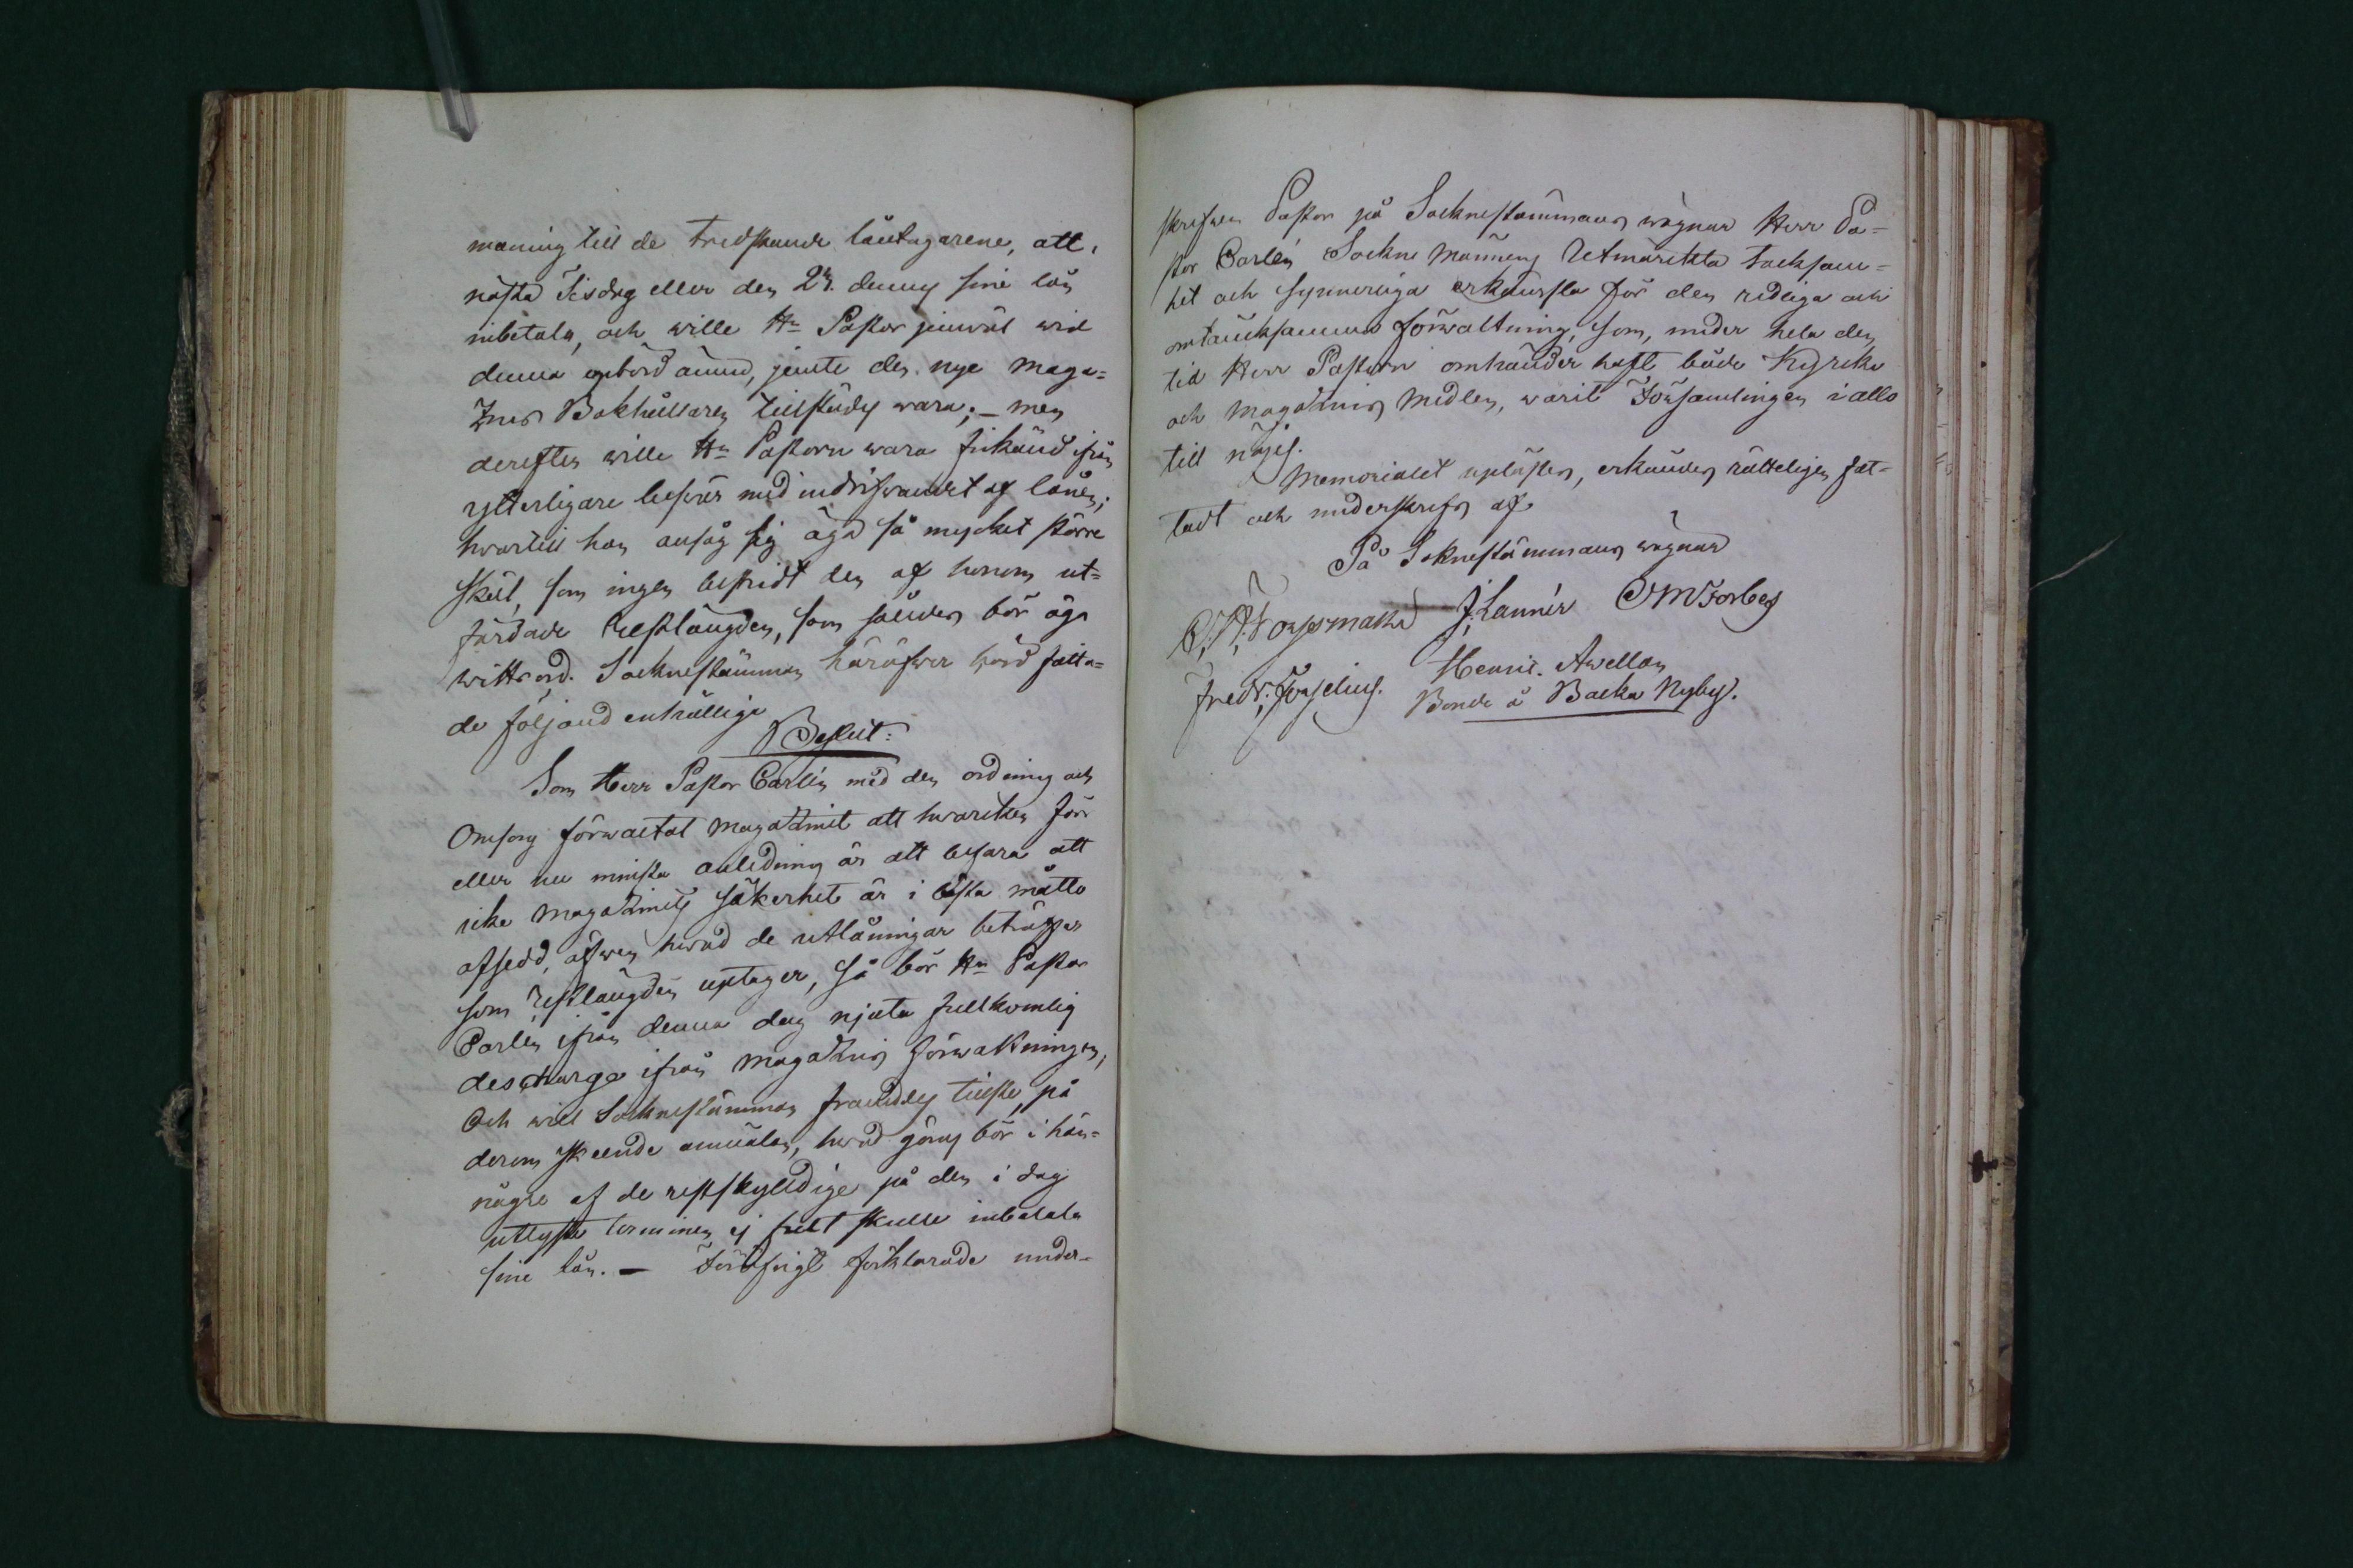 maning till de tredskande låntagarene, att,
nästa Tisdag eller den 24. denna sine lån
inbetala, och wille Hr Pastor jemwäl wid
denna upbörd ännu, jemte den nye Maga=
zins Bokhållaren tillstädes wara; — men
derefter wille Hr Pastorn wara frikänd ifrån
ytterligare beswär med indrifwandet af lånen;
hwartill han ansåg sig äga så mycket större
skäl, som ingen bestridt den af honom ut=
färdade Restlängden, som således bör äga
wittsord. Socknestämman häröfwer hörd fatta=
de följand enhällige
Beslut:
Som Herr Pastor Carlén med den ordning och
Omsorg förwaltat Magazinet att hwarken förr
eller nu minsta anledning är att befara att
icke Magazinets säkerhet är i bästa måtto
afsedd, äfwen hwad de utlåningar beträffar
som Restlängden uptager, så bör Hr Pastor
Carlén ifrån denna dag njuta fullkomlig
descharge ifrån Magazins förwaltningen,
Och will Socknestämman framdeles tillse, på
derom skeende anmälan, hwad göras bör i hän=
någre af de restskyldige på den i dag
utlyste terminen ej fullt skulle inbetala
sine lån. — Föröfrigt förklarade under=
skrefwen Pastor på Socknestämmans wägnar Herr Pa=
stor Carlén Sockne Männens Utmärkta tacksam=
het och synnerliga erkänsla för den redliga och
omtänksamma förwaltning, som, under hela den
tid Herr Pastorn omhänder haft både Kyrko
och Magazins Medlen, warit Församlingen i allo
till nöjes.
Memorialet uplästes, erkändes rätteligen fat=
tadt och underskrefs af
På Soknestämmans wägnar
J. Lannér OMForberg
Fredr. Forselius. Henric. Awellan
Bonde å Backa Nyby.